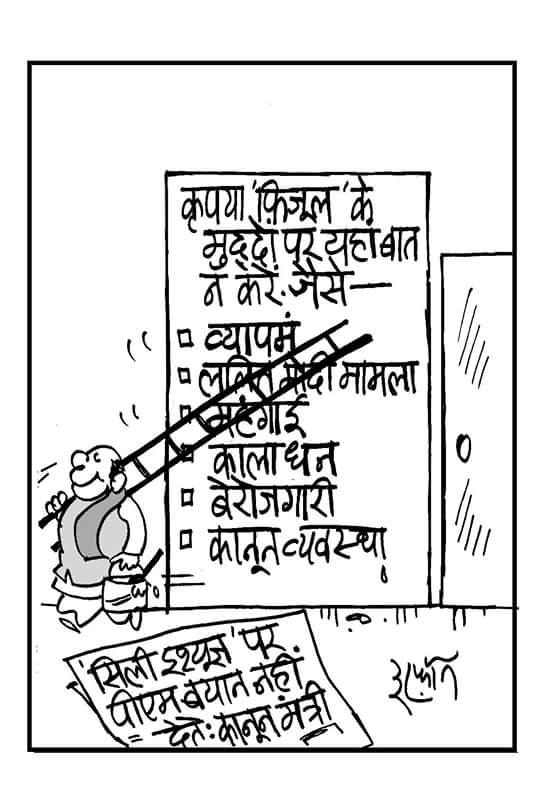 कृपया 'फ़िजूल' के
मुद्दों पर यहां बात
न करें. जैसे—
व्यापमं
ललित मोदी मामला
महंगाई
काला धन
बेरोजगारी
कानून व्यवस्था
'सिली इश्यूज़' पर
पीएम बयान नहीं
देते: कानून मंत्री
इरफ़ान